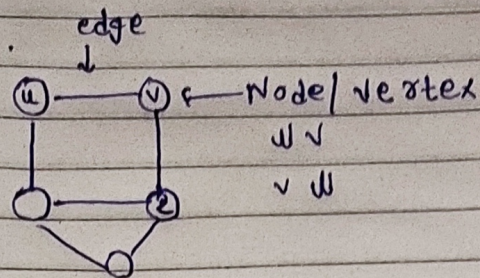 edge
u v Node/vertex
u v
v u
2